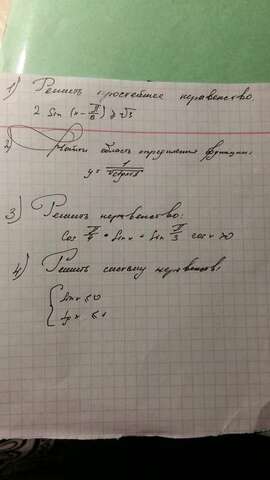 1) Решить простейшее неравенство.
2 Sin (x - π/6) ≥ √3
2) Найти область определения функции:
y = 1/
3) Решить неравенство:
Cos π/4 • Sin x - Sin π/3 cos x > 0
4) Решить систему неравенств:
{ Sin x ≤ 0
tg x ≤ 1